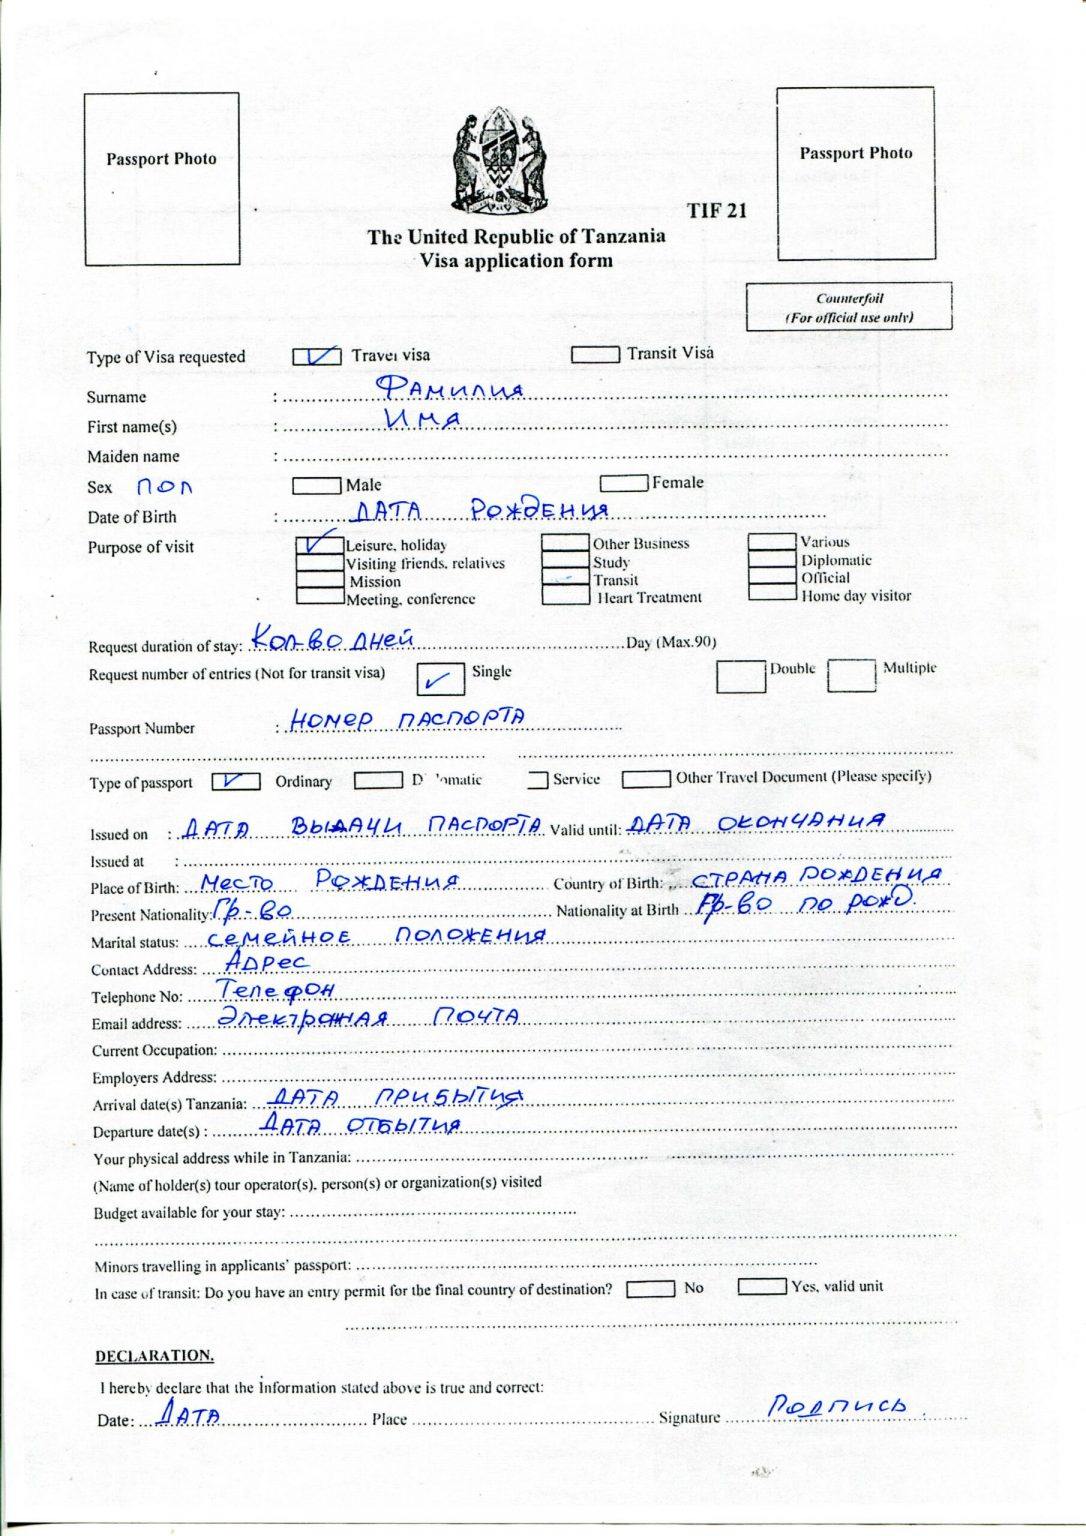 Passport Photo
Passport Photo
TIF 21
The United Republic of Tanzania
Visa application form
Counterfoil
(For official use only)
Type of Visa requested Travel visa Transit Visa
Surname : Фамилия
First name(s) : Имя
Maiden name :
Sex пол Male Female
Date of Birth : Дата рождения
Purpose of visit Leisure, holiday Other Business Various
Visiting friends, relatives Study Diplomatic
Mission Transit Official
Meeting, conference Heart Treatment Home day visitor
Request duration of stay: Кол-во дней Day (Max.90)
Request number of entries (Not for transit visa) Single Double Multiple
Passport Number : Номер паспорта
Type of passport Ordinary Service Other Travel Document (Please specify)
Issued on : Дата выдачи паспорта Valid until: Дата окончания
Issued at :
Place of Birth: Место рождения Country of Birth: страна рождения
Present Nationality: Гр-во Nationality at Birth Гр-во по рожд.
Marital status: семейное положения
Contact Address: Адрес
Telephone No: Телефон
Email address: Электронная почта
Current Occupation:
Employers Address:
Arrival date(s) Tanzania: Дата прибытия
Departure date(s) : Дата отбытия
Your physical address while in Tanzania:
(Name of holder(s) tour operator(s), person(s) or organization(s) visited
Budget available for your stay:
Minors travelling in applicants' passport:
In case of transit: Do you have an entry permit for the final country of destination? No Yes, valid unit
DECLARATION.
I hereby declare that the Information stated above is true and correct:
Date: Дата Place Signature Подпись